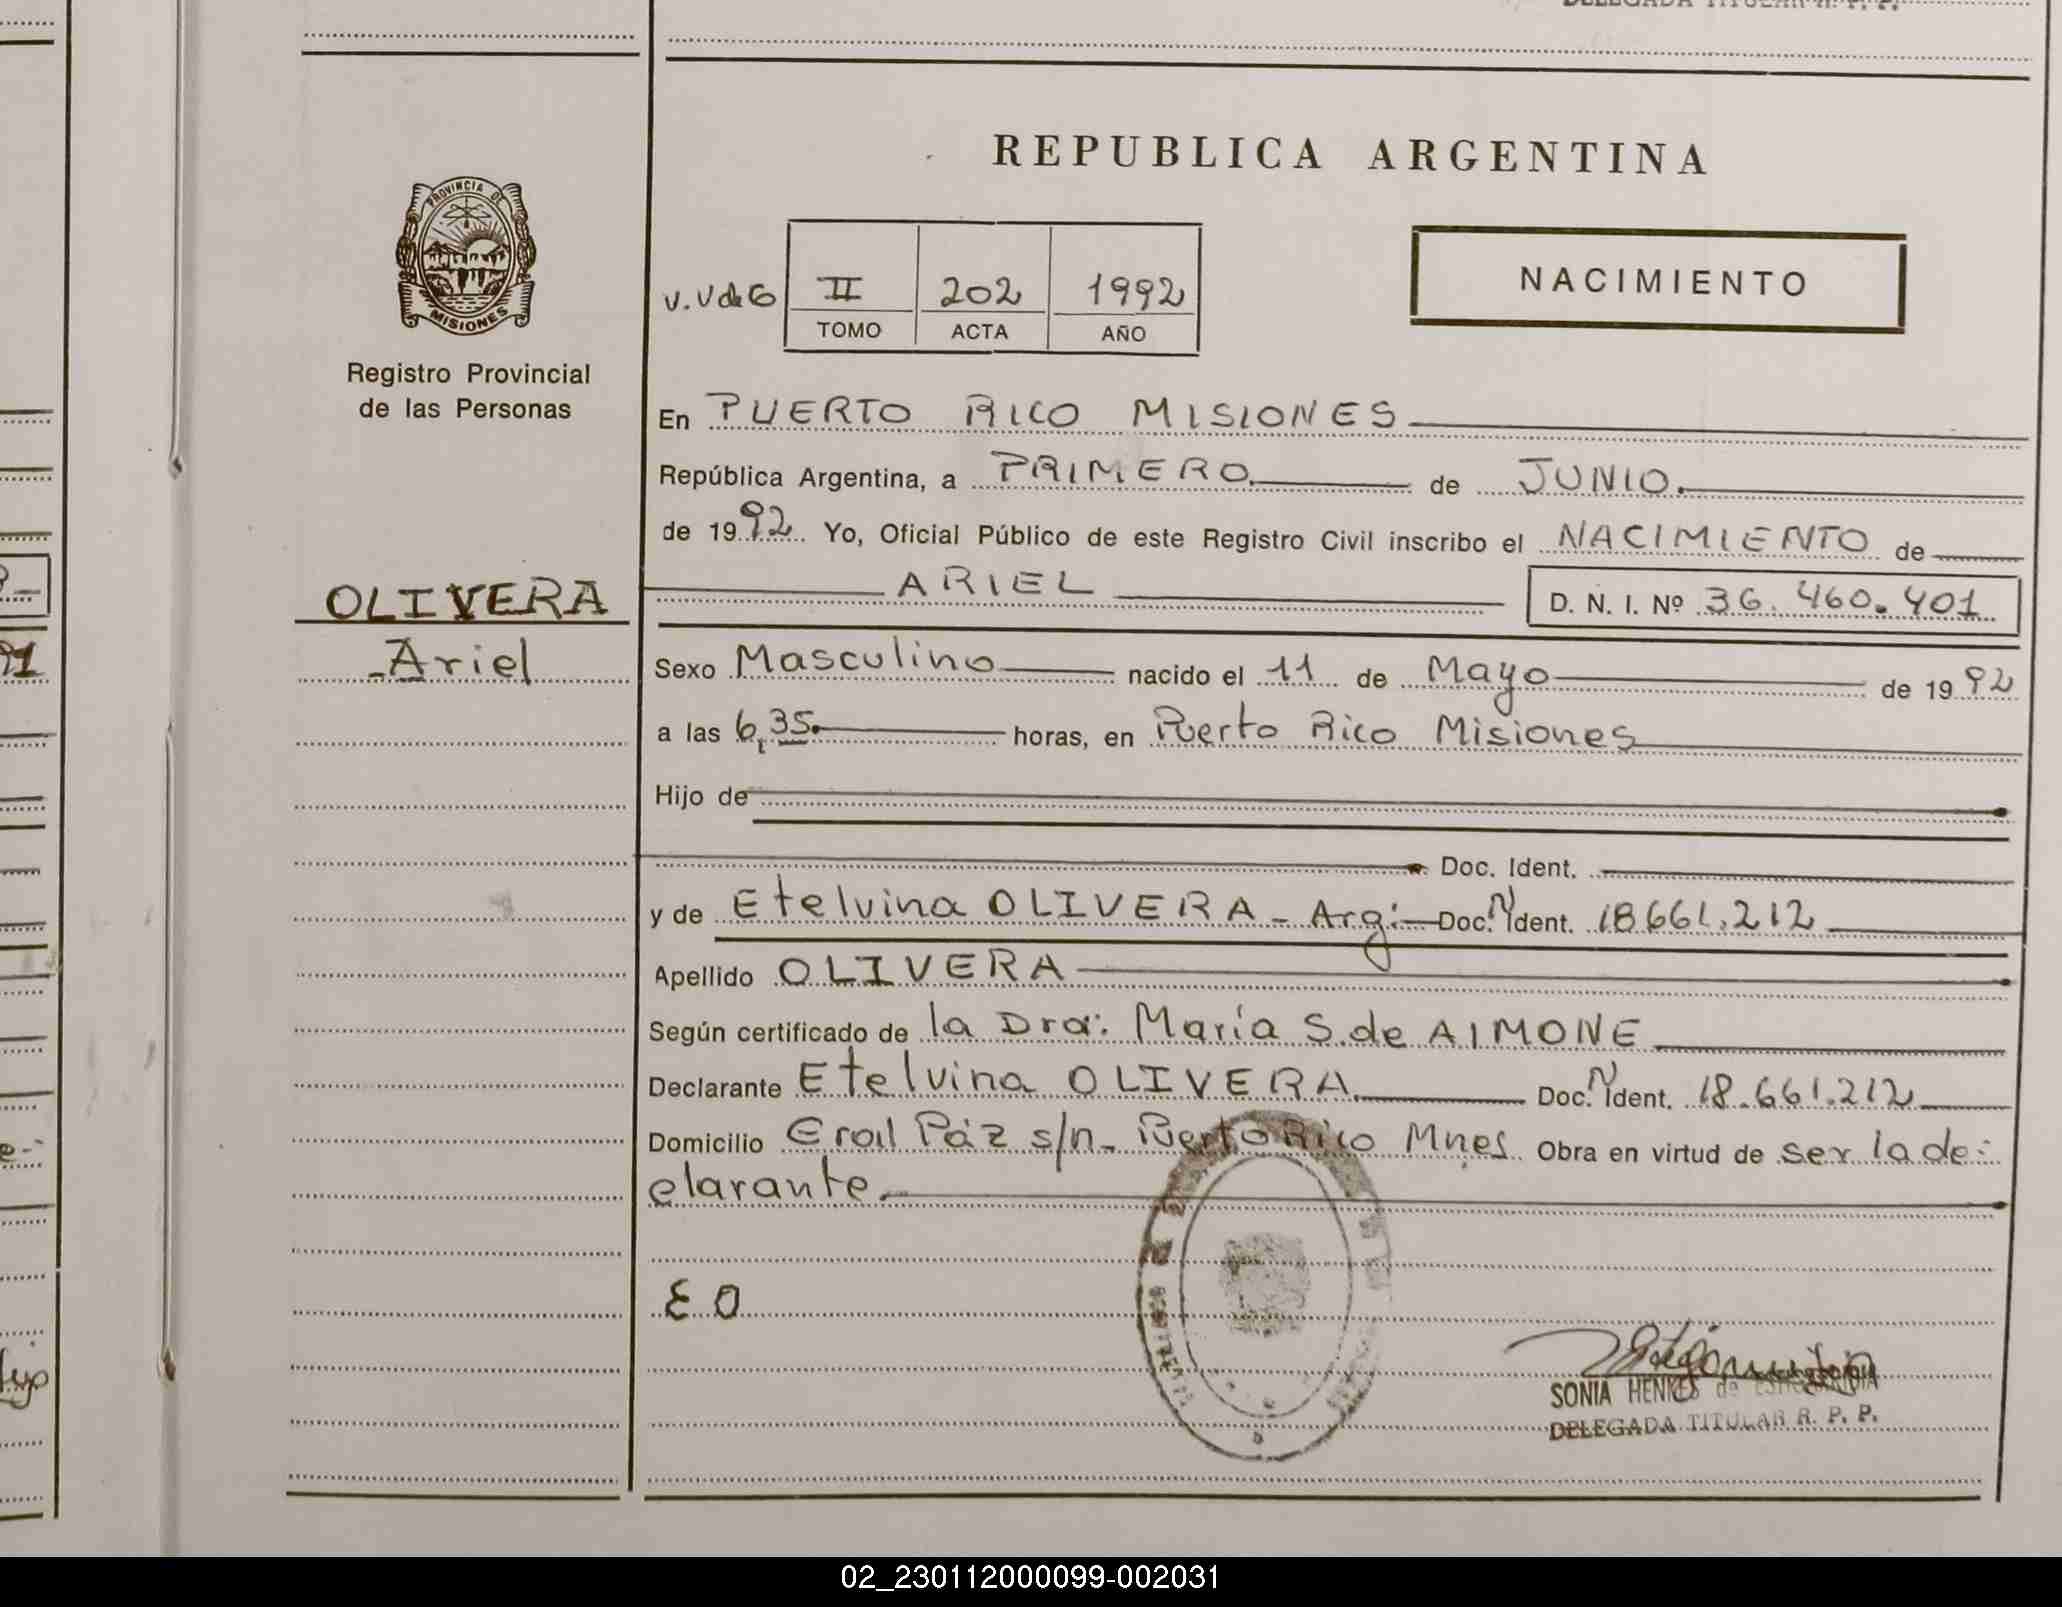 REPUBLICA ARGENTINA
PROVINCIA DE
MISIONES
Registro Provincial
de las Personas
V. V de G
II 202 1992
TOMO ACTA AÑO
NACIMIENTO
En PUERTO RICO MISIONES
República Argentina, a PRIMERO de JUNIO.
de 1992 Yo, Oficial Público de este Registro Civil inscribo el NACIMIENTO de
ARIEL D. N. I. Nº 36.460.401
OLIVERA
Ariel
Sexo Masculino nacido el 11 de Mayo de 1992
a las 6,35. horas, en Puerto Rico Misiones
Hijo de
Doc. Ident.
y de Etelvina OLIVERA - Arg: Doc. N Ident. 18661.212
Apellido OLIVERA
Según certificado de la Dra: María S. de AIMONE
Declarante Etelvina OLIVERA. Doc. N Ident. 18.661.212
Domicilio Gral Páz s/n- Puerto Rico Mnes Obra en virtud de ser la de-
clarante.
E O
SONIA HENKES de
DELEGADA TITULAR R. P. P.
02_230112000099-002031